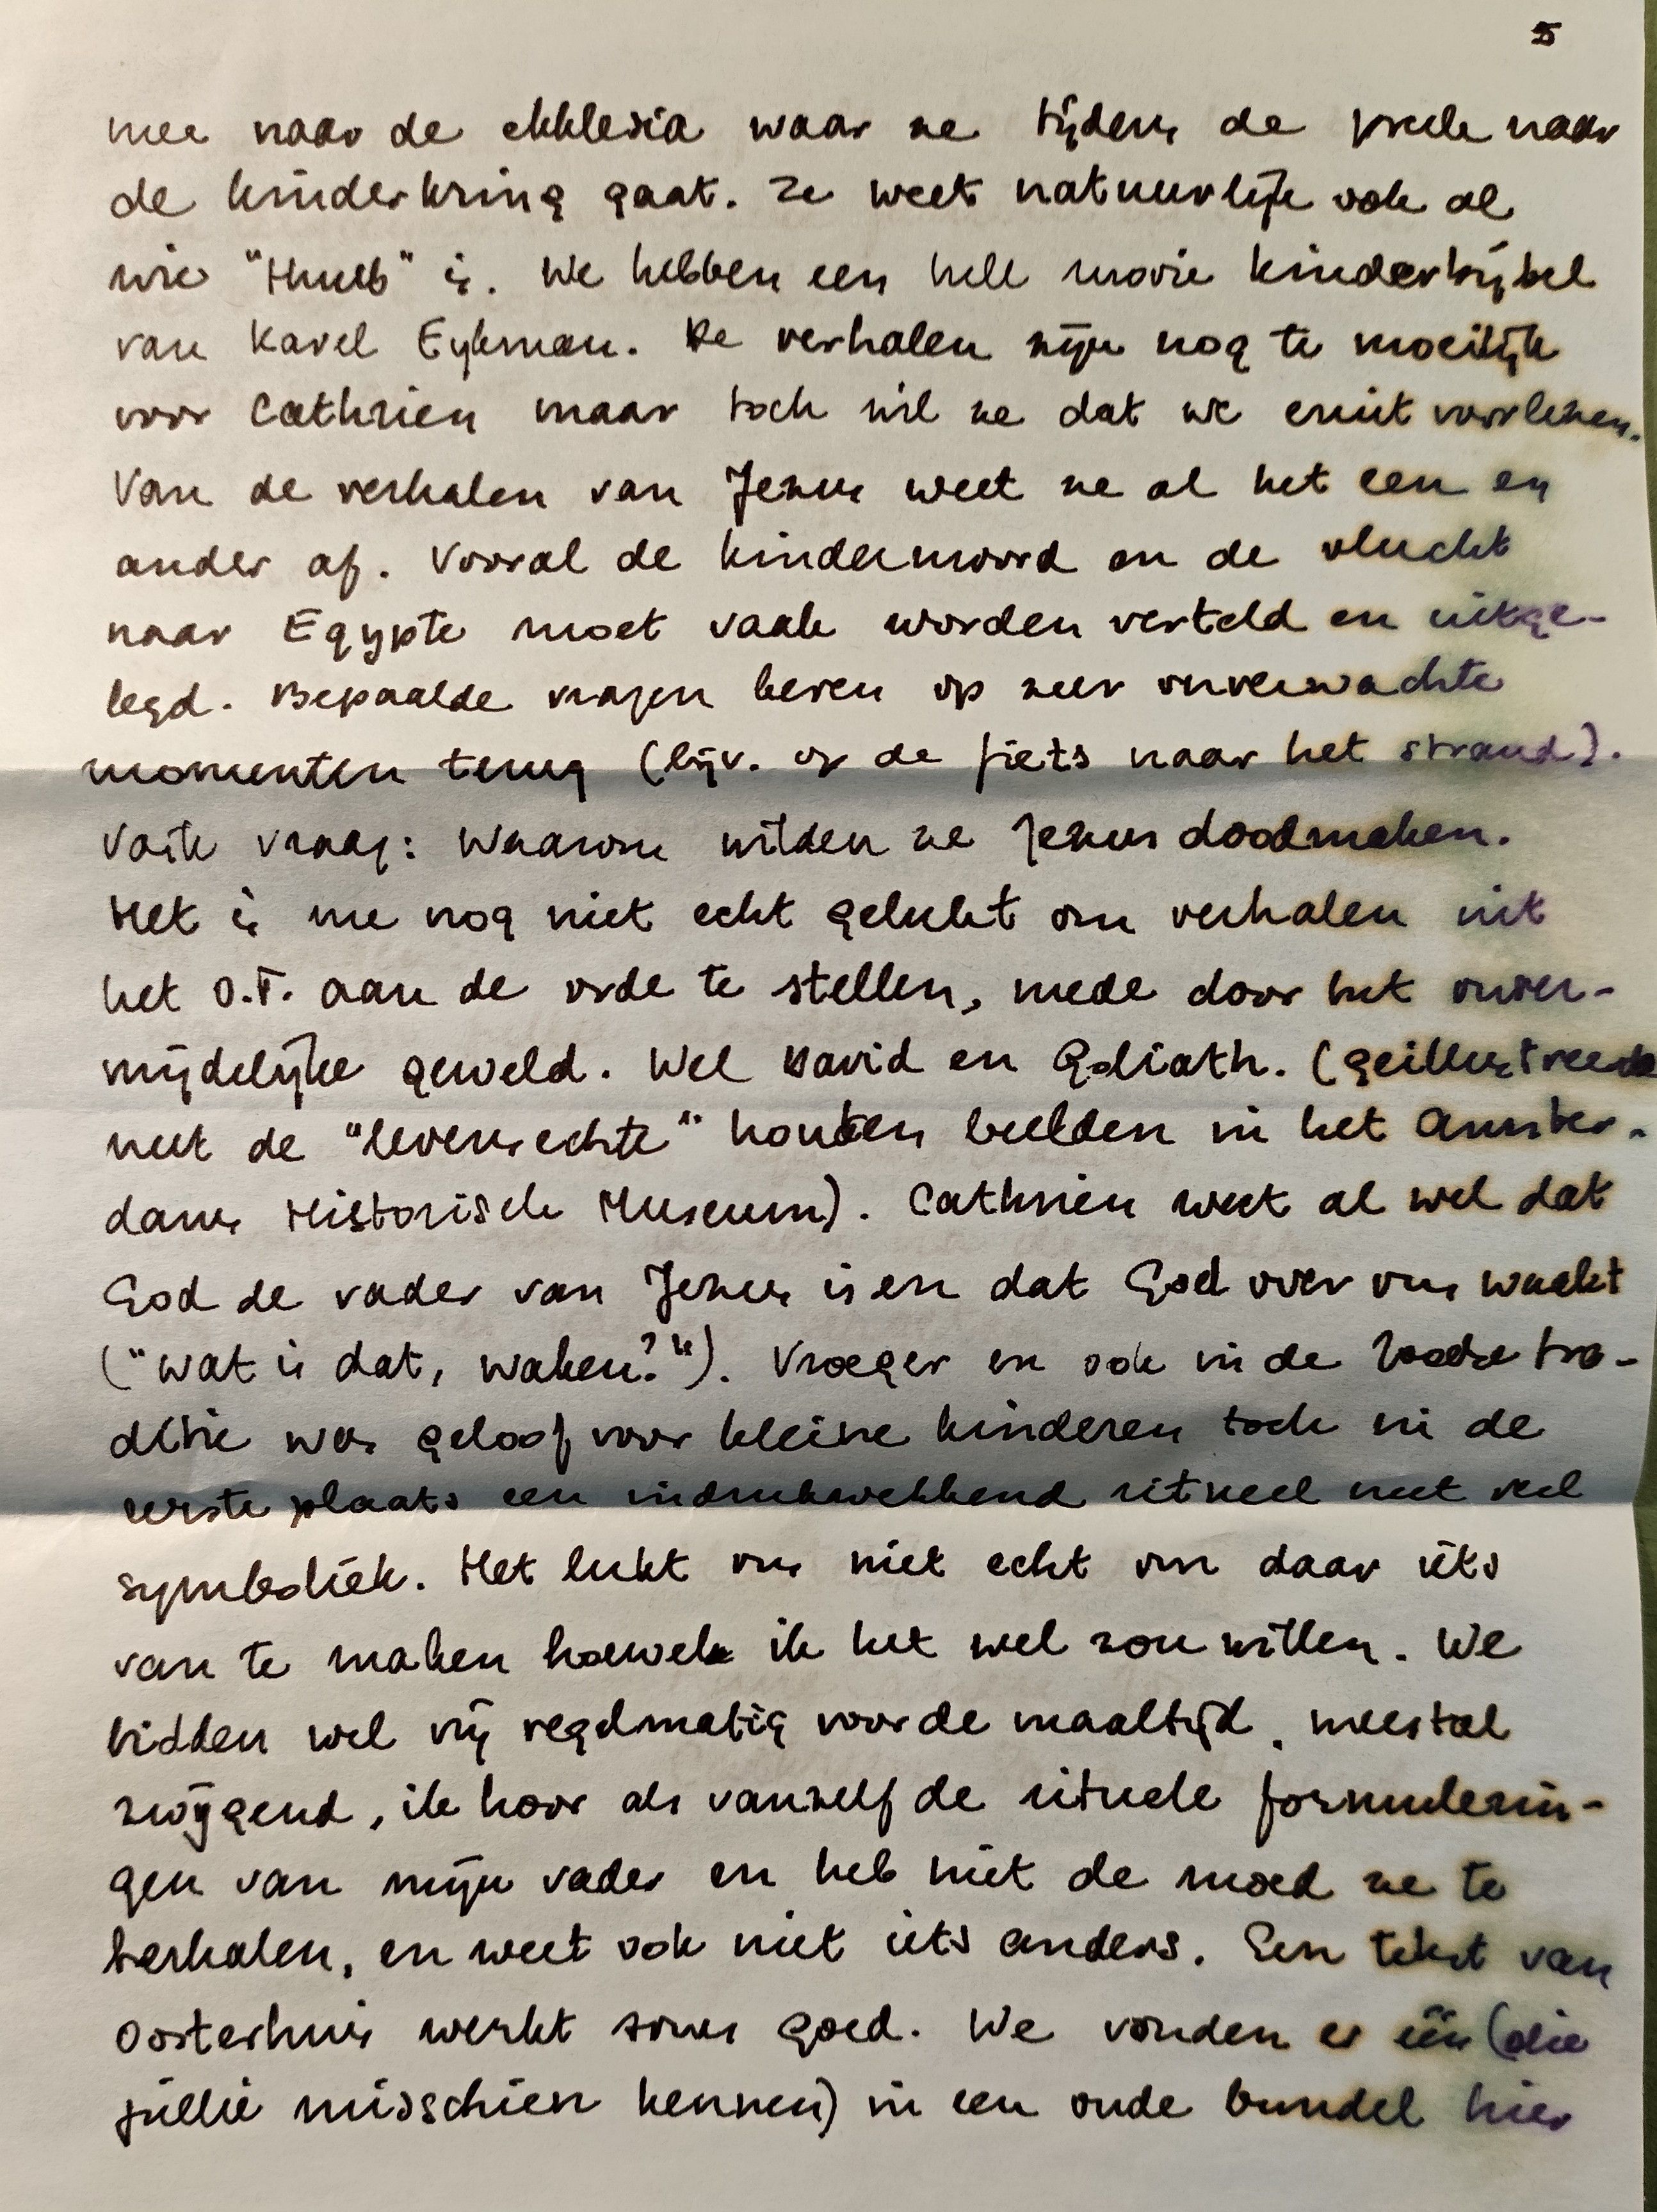 5
mee naar de ekklesia waar ze tijdens de preek naar
de kinderkring gaat. Ze weet natuurlijk ook al
wie "Huub" is. We hebben een hele mooie kinderbijbel
van Karel Eykman. De verhalen zijn nog te moeilijk
voor Cathrien maar toch wil ze dat we eruit voorlezen.
Van de verhalen van Jezus weet ze al het een en
ander af. Vooral de kindermoord en de vlucht
naar Egypte moet vaak worden verteld en uitge-
legd. Bepaalde vragen keren op zeer onverwachte
momenten terug (bijv. op de fiets naar het strand).
Vaste vraag: Waarom wilden ze Jezus doodmaken.
Het is me nog niet echt gelukt om verhalen uit
het O.T. aan de orde te stellen, mede door het onver-
mijdelijke geweld. Wel David en Goliath. (geillustreerde
met de "levensechte" houten beelden in het Amster-
dams Historisch Museum). Cathrien weet al wel dat
God de vader van Jezus is en dat God over ons waakt
("wat is dat, waken?"). Vroeger en ook in de Joodse tra-
ditie was geloof voor kleine kinderen toch in de
eerste plaats een indrukwekkend ritueel met veel
symboliek. Het lukt ons niet echt om daar iets
van te maken hoewel ik het wel zou willen. We
bidden wel vrij regelmatig voor de maaltijd, meestal
zwijgend, ik hoor als vanzelf de rituele formulerin-
gen van mijn vader en heb niet de moed ze te
herhalen, en weet ook niet iets anders. Een tekst van
Oosterhuis werkt soms goed. We vonden er één (die
jullie misschien kennen) in een oude bundel hier